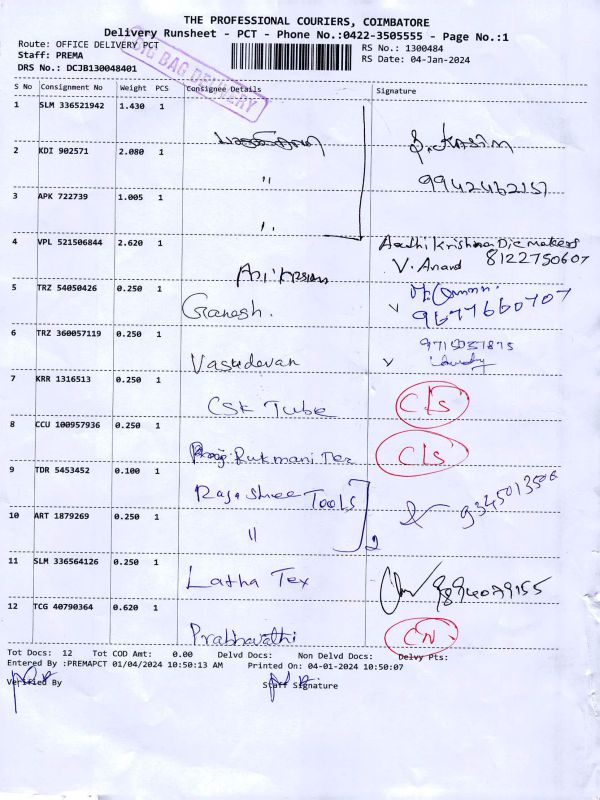 THE PROFESSIONAL COURIERS, COIMBATORE
Delivery Runsheet - PCT - Phone No.:0422-3505555 - Page No.:1
Route: OFFICE DELIVERY PCT
Staff: PREMA
DRS No.: DCJB130048401
RS No.: 1300484
RS Date: 04-Jan-2024
BIG BAG DELIVERY
S No Consignment No Weight PCS Consignee Details Signature
1 SLM 336521942 1.430 1
2 KDI 902571 2.080 1 "
9942462151
3 APK 722739 1.005 1 "
4 VPL 521506844 2.620 1 Aadhi Krishna Die makers
V. Anand 8122750607
5 TRZ 54050426 0.250 1 Ganesh. 9677660707
6 TRZ 360057119 0.250 1 Vasudevan
7 KRR 1316513 0.250 1 CSK Tube C/s
8 CCU 100957936 0.250 1 Rukmani Tex C/s
9 TDR 5453452 0.100 1 Rajashree Tools 9345013506
10 ART 1879269 0.250 1 " 2
11 SLM 336564126 0.250 1 Latha Tex
12 TCG 40790364 0.620 1 Prabhavathi CN
Tot Docs: 12 Tot COD Amt: 0.00 Delvd Docs: Non Delvd Docs: Delvy Pts:
Entered By :PREMAPCT 01/04/2024 10:50:13 AM Printed On: 04-01-2024 10:50:07
Verified By Staff Signature